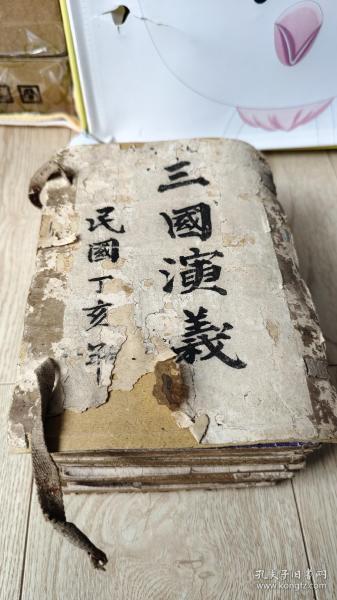 三國演義
民國丁亥年
孔夫子旧书网
www.kongfz.com